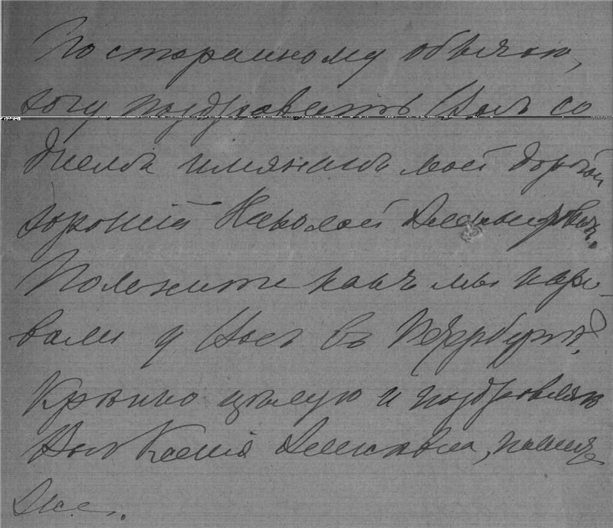 По старинному обычаю,
хочу поздравить Васъ со
днемъ имянинъ мой дорогой
хорошій Николай Александровичъ.
Помните какъ мы пиро-
вали у Васъ въ Петербургѣ.
Крѣпко цѣлую и поздравляю
Васъ Ксенія